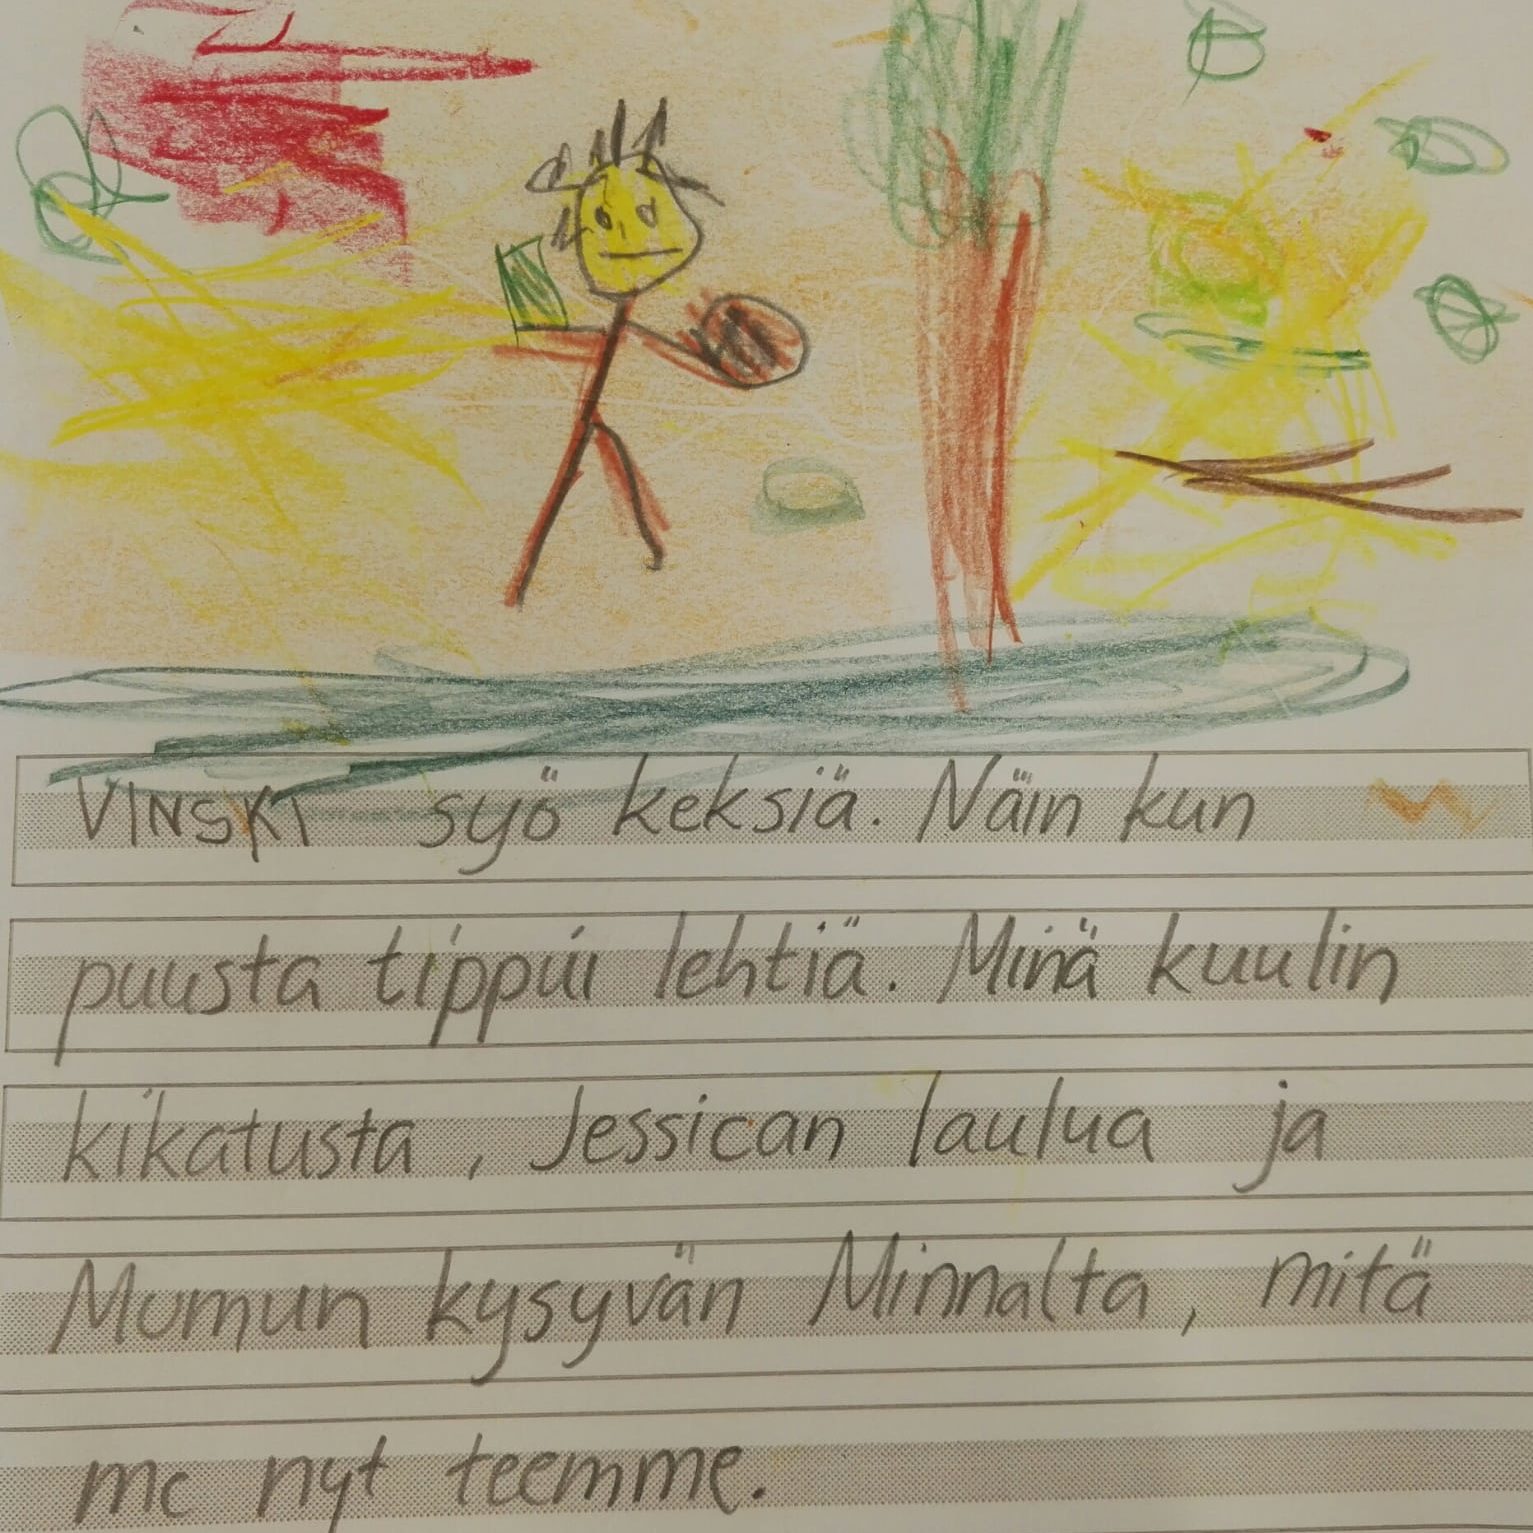 VINSKI syö keksiä. Näin kun
puusta tippui lehtiä. Minä kuulin
kikatusta, Jessican laulua ja
Mumun kysyvän Minnalta, mitä
me nyt teemme.